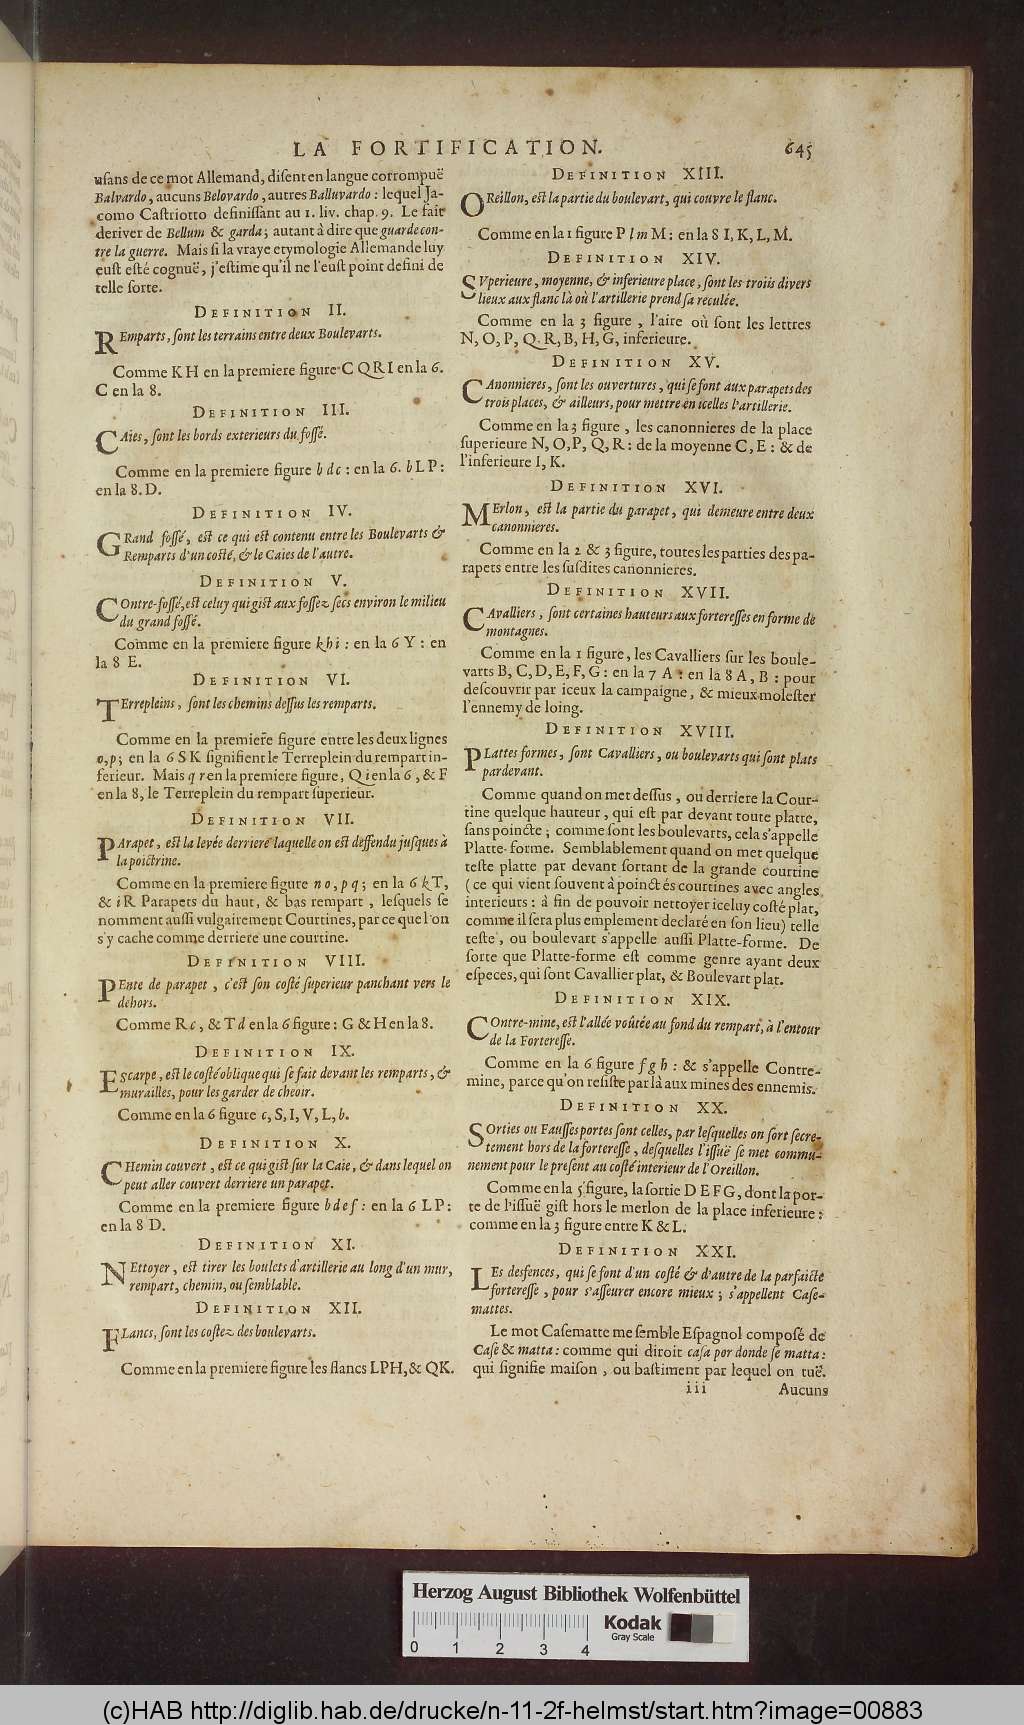 LA FORTIFICATION. 645
usans de ce mot Allemand, disent en langue corrompuë
Balvardo, aucuns Belovardo, autres Balluvardo: lequel Ja-
como Castriotto definissant au 1. liv. chap. 9. Le fait
deriver de Bellum & garda; autant à dire que guarde con-
tre la guerre. Mais si la vraye etymologie Allemande luy
eust esté cognuë, j'estime qu'il ne l'eust point defini de
telle sorte.
DEFINITION II.
REmparts, sont les terrains entre deux Boulevarts.
Comme KH en la premiere figure C QRI en la 6.
C en la 8.
DEFINITION III.
CAies, sont les bords exterieurs du fossé.
Comme en la premiere figure b dc: en la 6. b L P:
en la 8. D.
DEFINITION IV.
GRand fossé, est ce qui est contenu entre les Boulevarts &
Remparts d'un costé, & le Caies de l'autre.
DEFINITION V.
COntre-fossé, est celuy qui gist aux fossez secs environ le milieu
du grand fossé.
Comme en la premiere figure k h i: en la 6 Y: en
la 8 E.
DEFINITION VI.
TErrepleins, sont les chemins dessus les remparts.
Comme en la premiere figure entre les deux lignes
o, p; en la 6 S K signifient le Terreplein du rempart in-
ferieur. Mais q r en la premiere figure, Q i en la 6, & F
en la 8, le Terreplein du rempart superieur.
DEFINITION VII.
PArapet, est la levée derriere laquelle on est deffendu jusques à
la poictrine.
Comme en la premiere figure n o, p q; en la 6 k T,
& i R Parapets du haut, & bas rempart, lesquels se
nomment aussi vulgairement Courtines, par ce que l'on
s'y cache comme derriere une courtine.
DEFINITION VIII.
PEnte de parapet, c'est son costé superieur panchant vers le
dehors.
Comme R c, & T d en la 6 figure: G & H en la 8.
DEFINITION IX.
EScarpe, est le costé oblique qui se fait devant les remparts, &
murailles, pour les garder de cheoir.
Comme en la 6 figure c, S, I, V, L, b.
DEFINITION X.
CHemin couvert, est ce qui gist sur la Caie, & dans lequel on
peut aller couvert derriere un parapet.
Comme en la premiere figure b d e f: en la 6 LP:
en la 8 D.
DEFINITION XI.
NEttoyer, est tirer les boulets d'artillerie au long d'un mur,
rempart, chemin, ou semblable.
DEFINITION XII.
FLancs, sont les costez des boulevarts.
Comme en la premiere figure les flancs LPH, & QK.
DEFINITION XIII.
OReillon, est la partie du boulevart, qui couvre le flanc.
Comme en la 1 figure P l m M: en la 8 I, K, L, M.
DEFINITION XIV.
SUperieure, moyenne, & inferieure place, sont les troiis divers
lieux aux flanc là où l'artillerie prend sa reculée.
Comme en la 3 figure, l'aire où sont les lettres
N, O, P, Q. R, B, H, G, inferieure.
DEFINITION XV.
CAnonnieres, sont les ouvertures, qui se font aux parapets des
trois places, & ailleurs, pour mettre en icelles l'artillerie.
Comme en la 3 figure, les canonnieres de la place
superieure N, O, P, Q, R: de la moyenne C, E: & de
l'inferieure I, K.
DEFINITION XVI.
MErlon, est la partie du parapet, qui demeure entre deux
canonnieres.
Comme en la 2 & 3 figure, toutes les parties des pa-
rapets entre les susdites canonnieres.
DEFINITION XVII.
CAvalliers, sont certaines hauteurs aux forteresses en forme de
montagnes.
Comme en la 1 figure, les Cavalliers sur les boule-
varts B, C, D, E, F, G: en la 7 A: en la 8 A, B: pour
descouvrir par iceux la campaigne, & mieux molester
l'ennemy de loing.
DEFINITION XVIII.
PLattes formes, sont Cavalliers, ou boulevarts qui sont plats
pardevant.
Comme quand on met dessus, ou derriere la Cour-
tine quelque hauteur, qui est par devant toute platte,
sans poincte; comme sont les boulevarts, cela s'appelle
Platte-forme. Semblablement quand on met quelque
teste platte par devant sortant de la grande courtine
(ce qui vient souvent à poinct és courtines avec angles
interieurs: à fin de pouvoir nettoyer iceluy costé plat,
comme il sera plus emplement declaré en son lieu) telle
teste, ou boulevart s'appelle aussi Platte-forme. De
sorte que Platte-forme est comme genre ayant deux
especes, qui sont Cavallier plat, & Boulevart plat.
DEFINITION XIX.
COntre-mine, est l'allée voûtée au fond du rempart, à l'entour
de la Forteresse.
Comme en la 6 figure f g h: & s'appelle Contre-
mine, parce qu'on resiste par là aux mines des ennemis.
DEFINITION XX.
SOrties ou Fausses portes sont celles, par lesquelles on sort secre-
tement hors de la forteresse, desquelles l'issuë se met commu-
nement pour le present au costé interieur de l'Oreillon.
Comme en la 5 figure, la sortie D E F G, dont la por-
te de l'issuë gist hors le merlon de la place inferieure:
comme en la 3 figure entre K & L.
DEFINITION XXI.
LEs desfences, qui se font d'un costé & d'autre de la parfaicte
forteresse, pour s'asseurer encore mieux; s'appellent Case-
mattes.
Le mot Casematte me semble Espagnol composé de
Case & matta: comme qui diroit casa por donde se matta:
qui signifie maison, ou bastiment par lequel on tuë.
iii Aucuns
Herzog August Bibliothek Wolfenbüttel
Kodak
Gray Scale
0 1 2 3 4
(c)HAB http://diglib.hab.de/drucke/n-11-2f-helmst/start.htm?image=00883